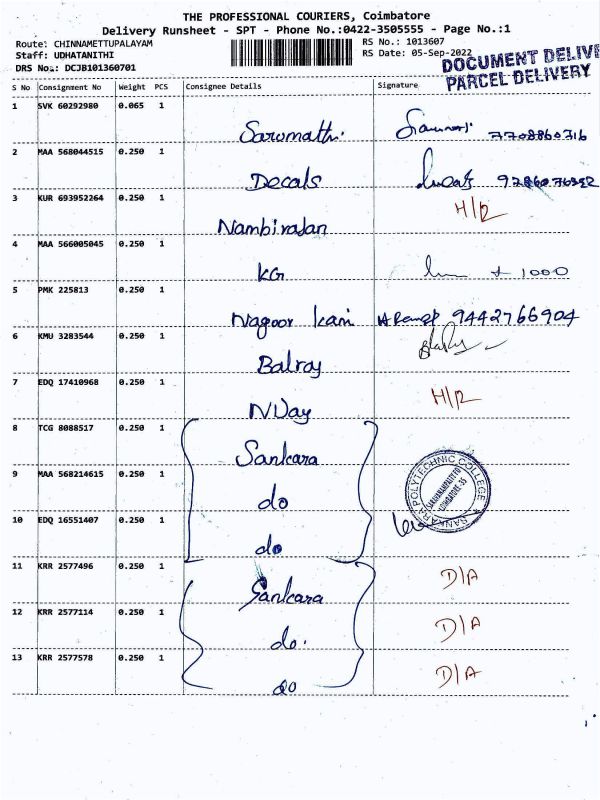 THE PROFESSIONAL COURIERS, Coimbatore
Delivery Runsheet - SPT - Phone No.:0422-3505555 - Page No.:1
Route: CHINNAMETTUPALAYAM RS No.: 1013607
Staff: UDHATANITHI RS Date: 05-Sep-2022
DRS No.: DCJB101360701
DOCUMENT DELIVE
PARCEL DELIVERY
S No Consignment No Weight PCS Consignee Details Signature
1 SVK 60292980 0.065 1
Sarumathi 7708860716
2 MAA 568044515 0.250 1
Decals
3 KUR 693952264 0.250 1 H/R
Nambirajan
4 MAA 566005045 0.250 1
KG + 1000
5 PMK 225813 0.250 1
Nagoor kani 9442766904
6 KMU 3283544 0.250 1
Balraj
7 EDQ 17410968 0.250 1 H/R
8 TCG 8088517 0.250 1
Sankara
SANKARA POLYTECHNIC COLLEGE
9 MAA 568214615 0.250 1
do
10 EDQ 16551407 0.250 1
do
11 KRR 2577496 0.250 1 D/A
Sankara
12 KRR 2577114 0.250 1 D/A
do.
13 KRR 2577578 0.250 1 D/A
do